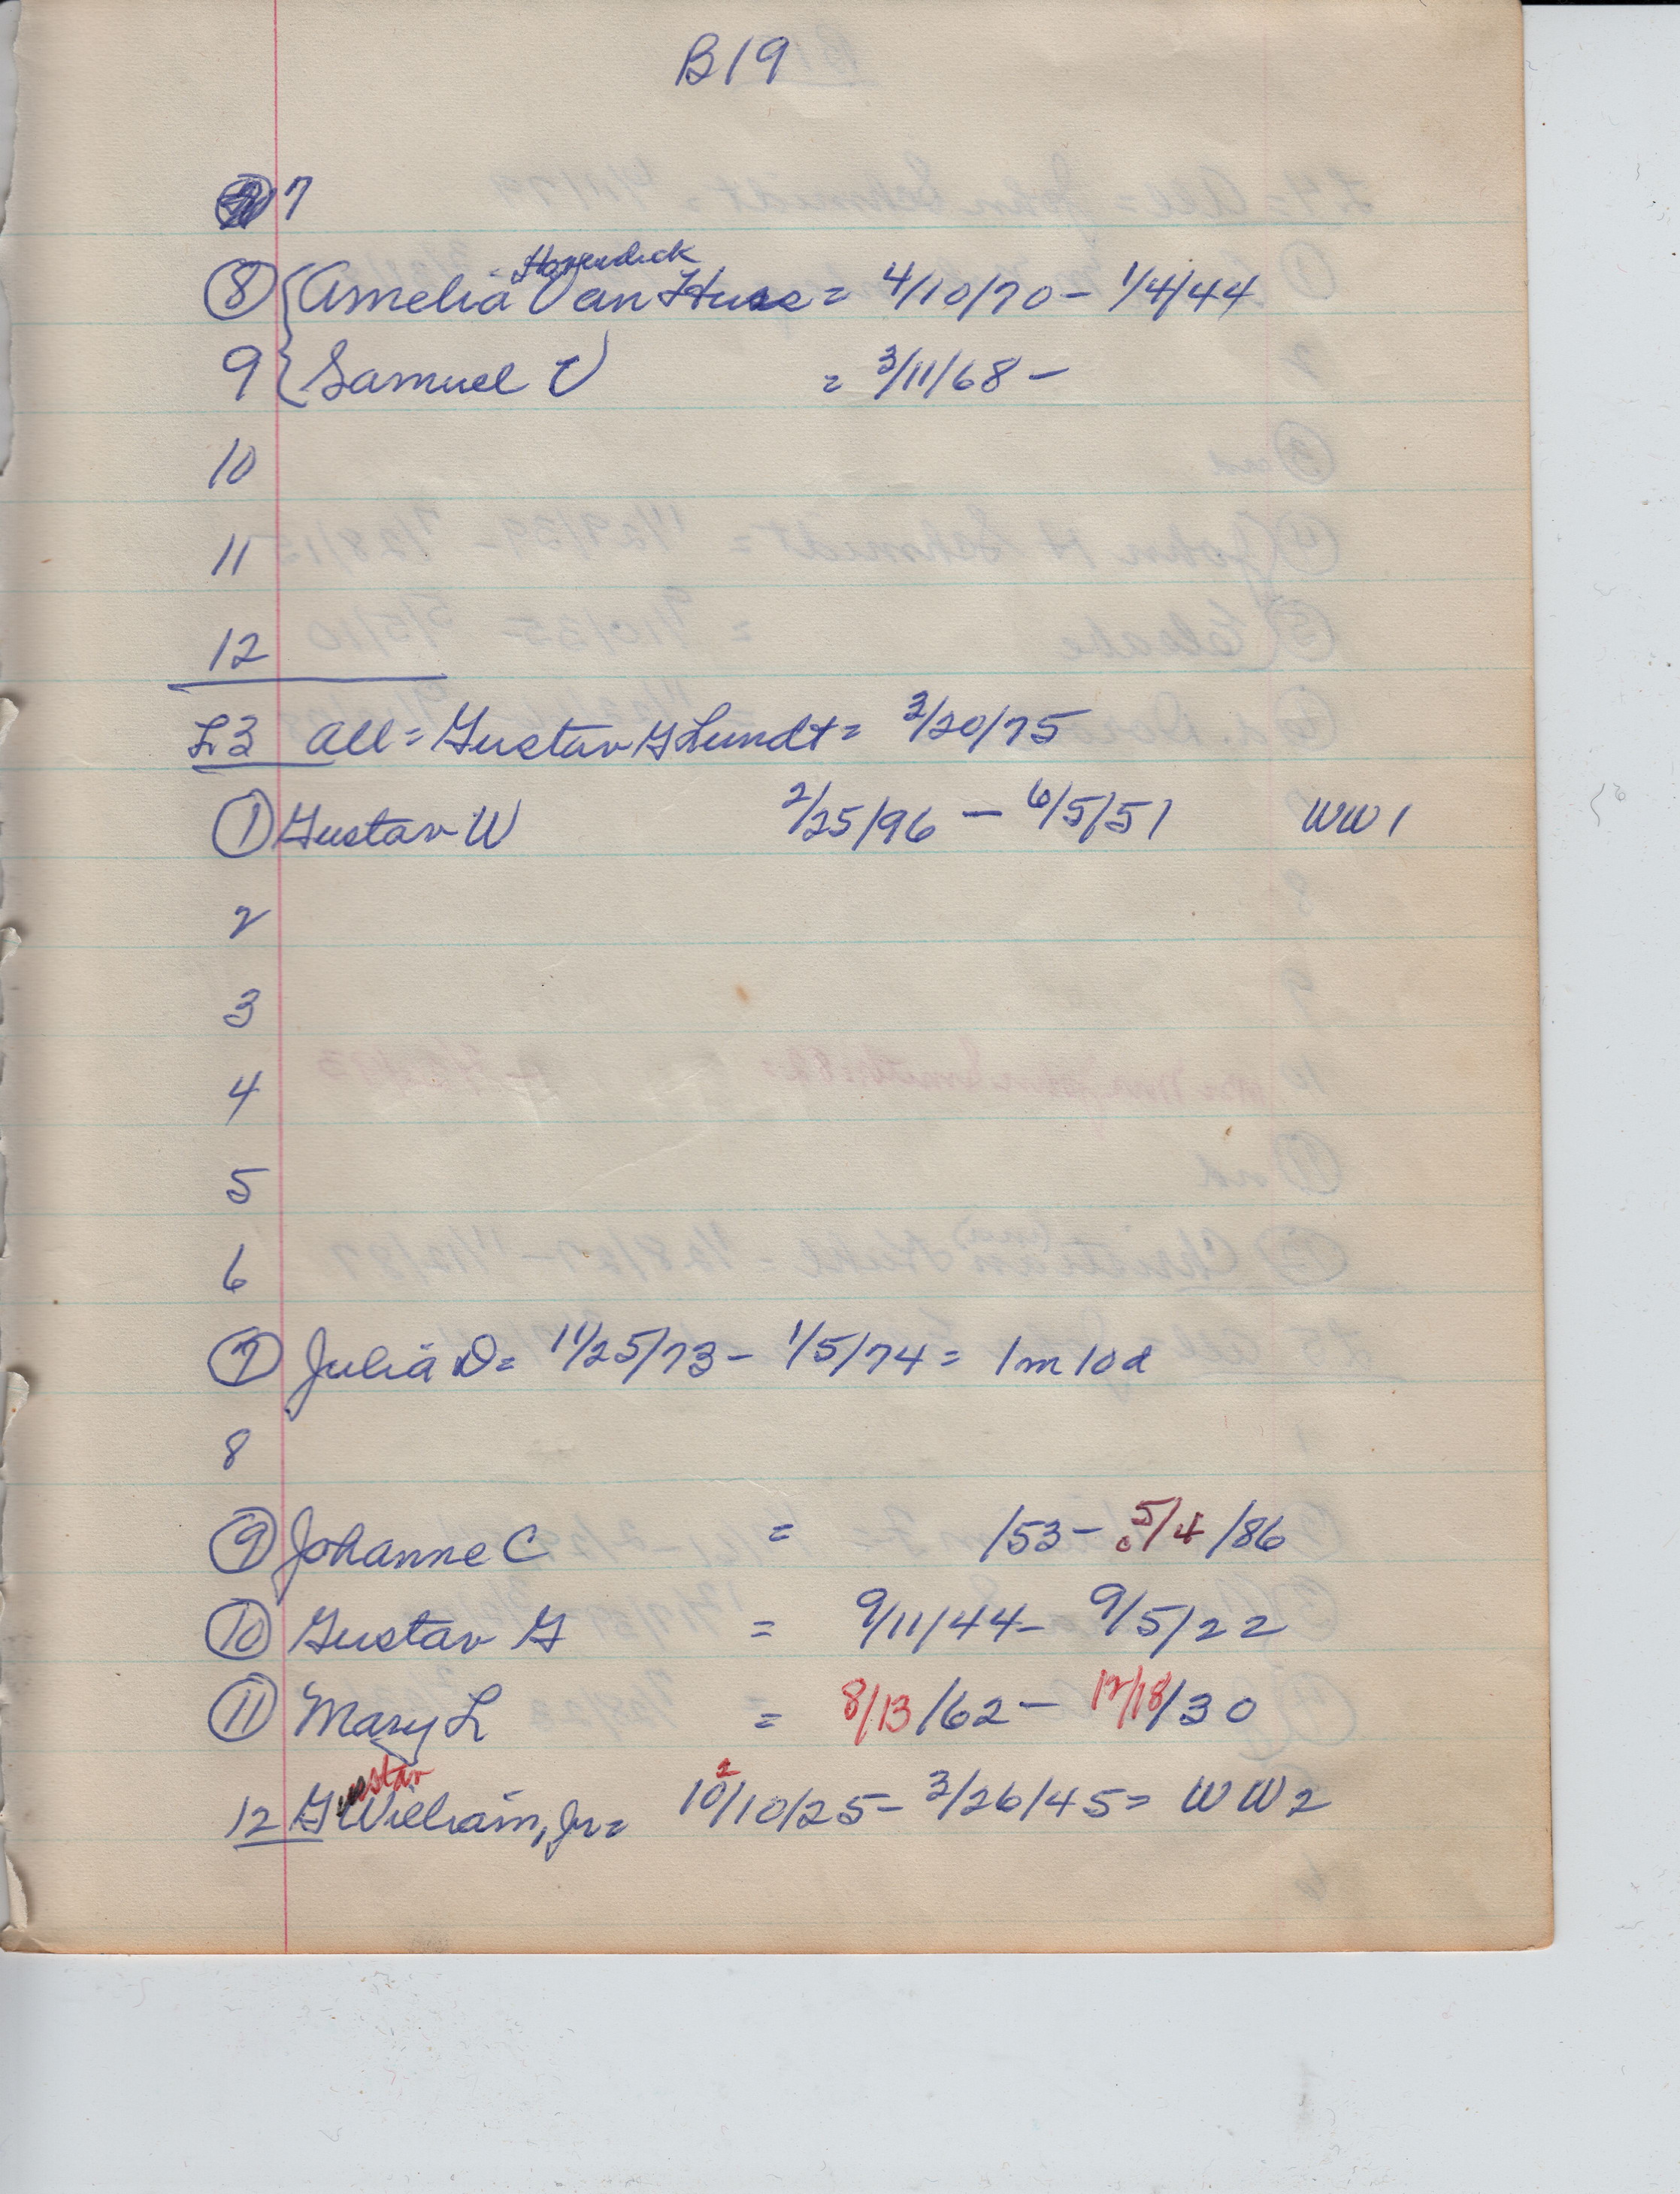 B19
7
Havendick
8 Amelia Van Huse = 4/10/70 - 1/4/44
9 Samuel V = 3/11/68 -
10
11
12
L3 all = Gustav G Lundt = 3/20/75
1 Gustav W 2/25/96 - 6/5/51 WW1
2
3
4
5
6
7 Julia D = 11/25/73 - 1/5/74 = 1m 10d
8
9 Johanne C = /53 - 5/4/86
10 Gustav G = 9/11/44 - 9/5/22
11 Mary L = 8/13/62 - 12/18/30
12 Gustav William, Jr = 10/10/25 - 3/26/45 = WW2